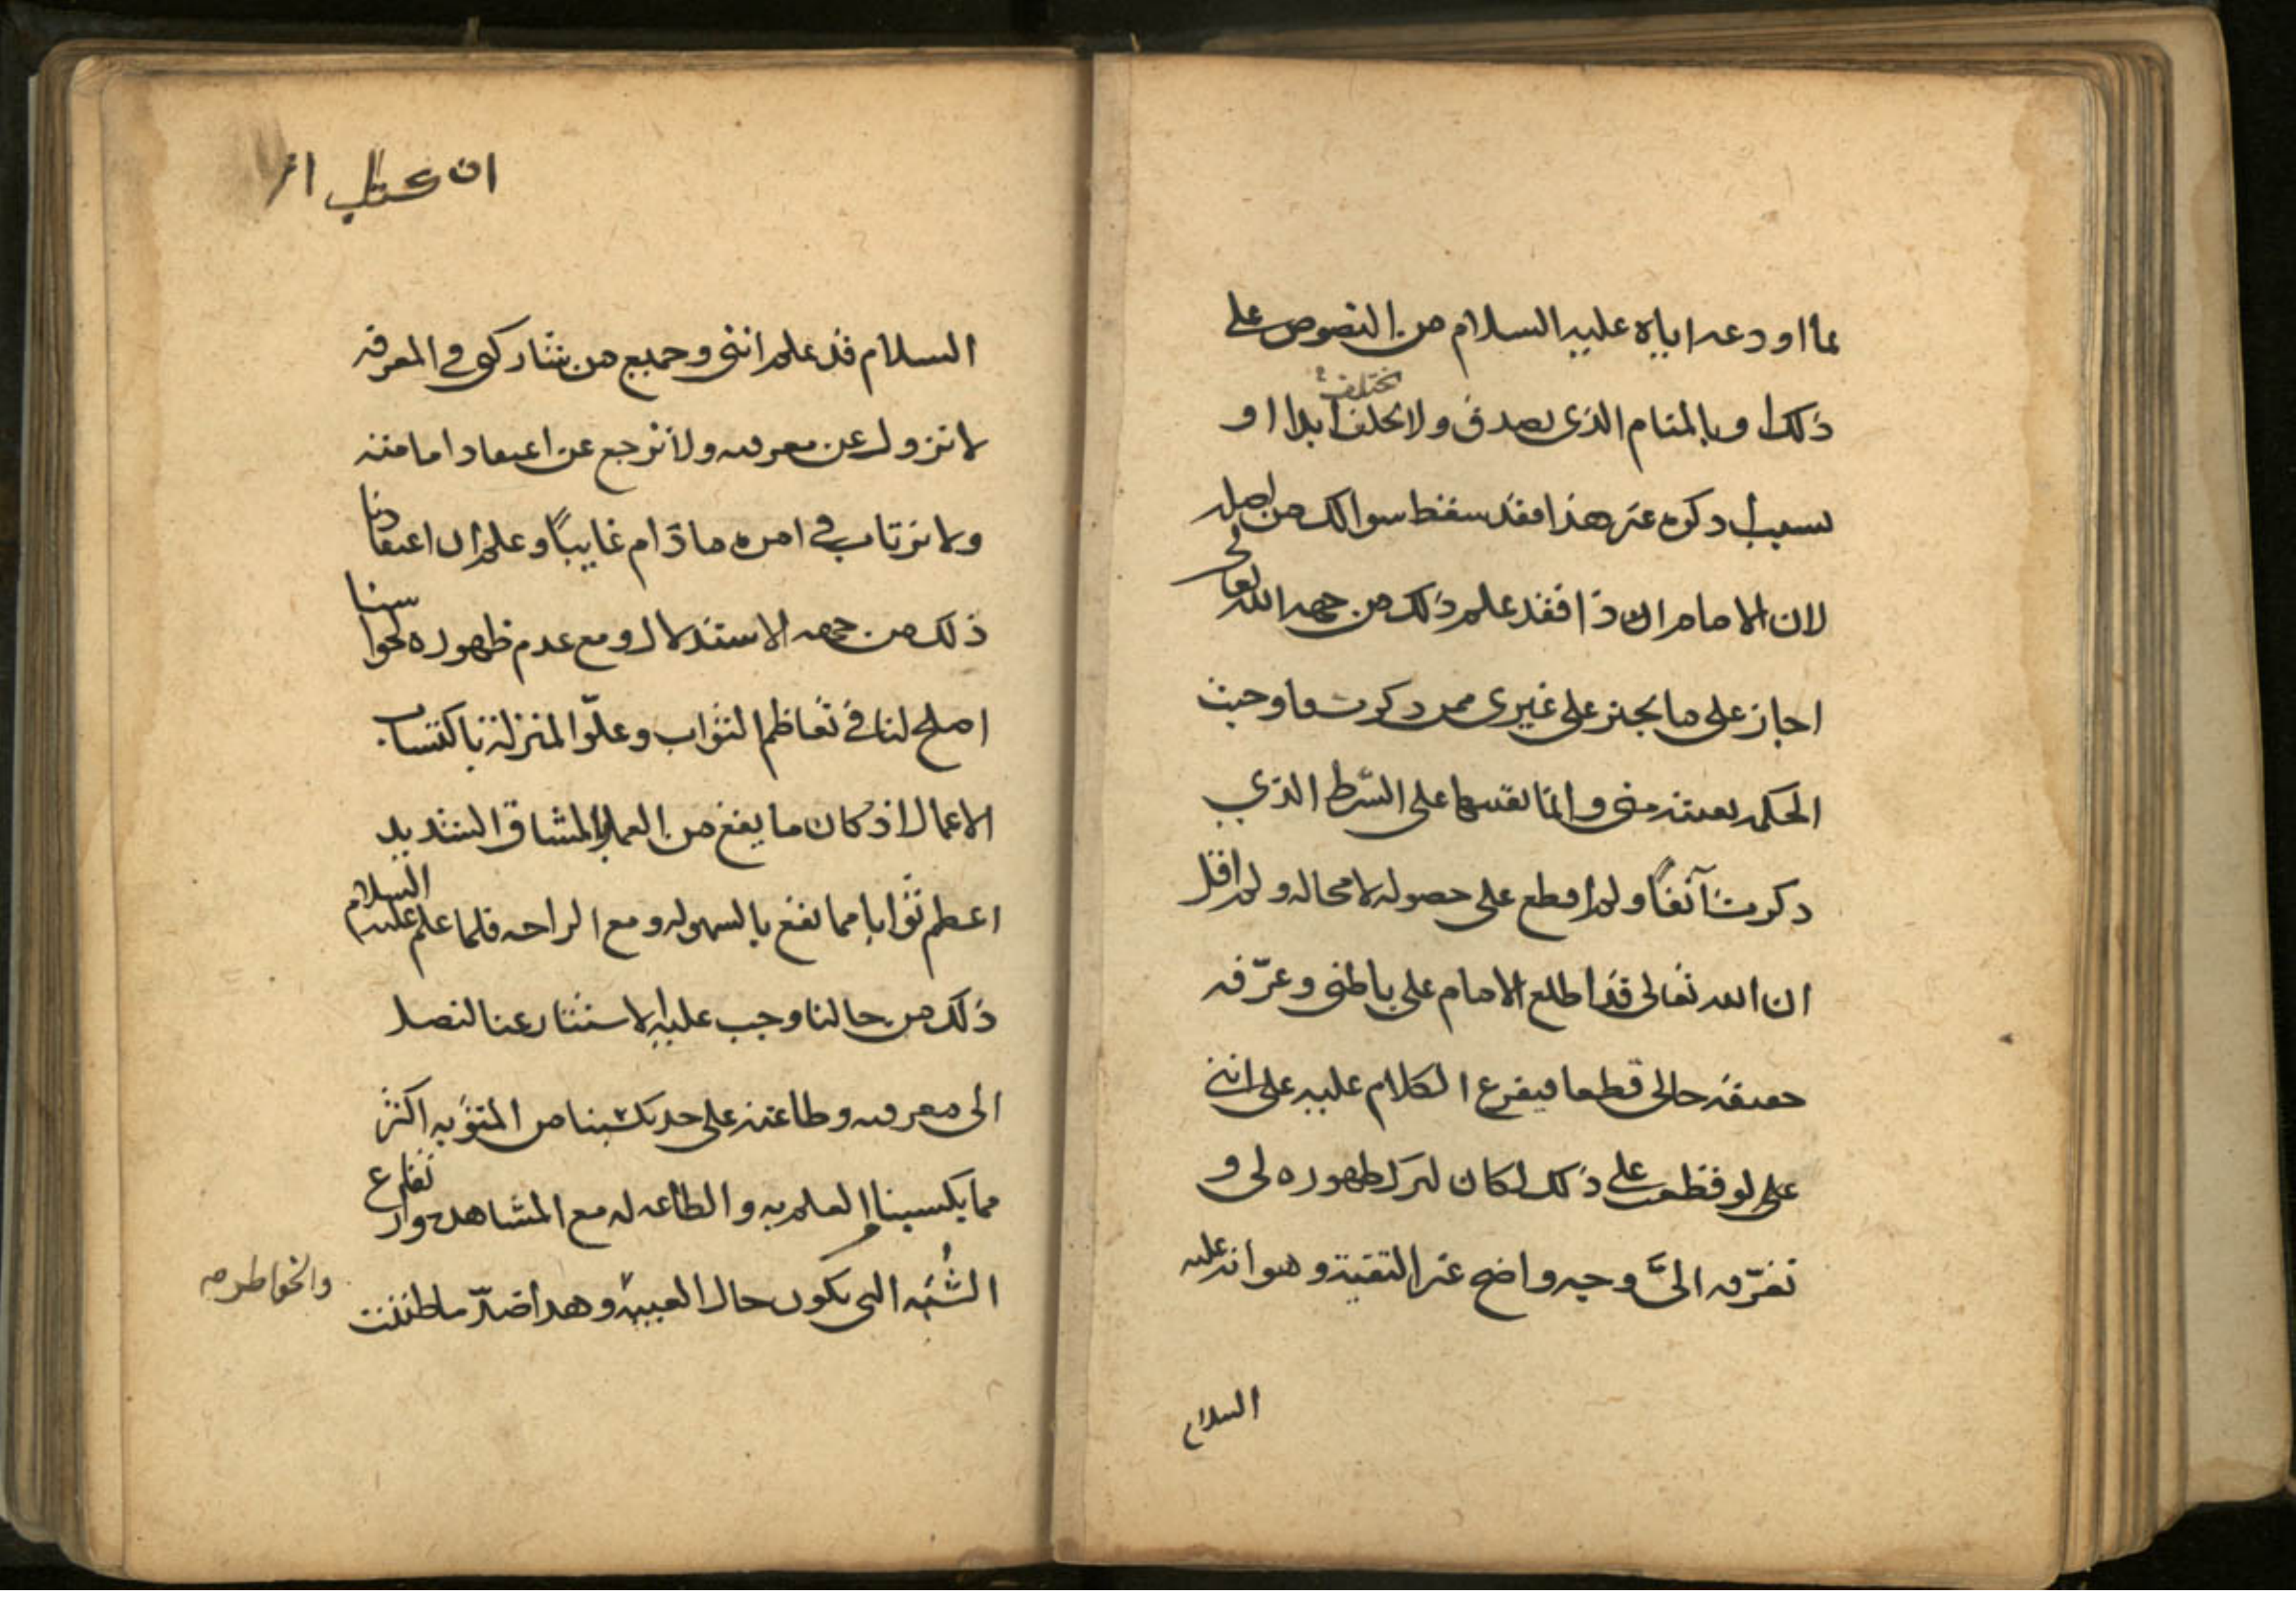 مما اودعه اباؤه عليه السلام من النصوص على
ذلك او بالمنام الذي يصدق ولا يخلف ابدا او
يختلف
لسبب ذكره غير هذا فقد سقط سوالك من اصله
لان الامام اذا فقد علم ذلك من جهة الله تعالى
اجاز على ما يجيز على غيري ممن ذكرت فاوجبت
الحكمه تقيته مني وانما تقيتها على الشرط الذي
ذكرت آنفًا ولم اقطع على حصوله لا محاله ولم اقل
ان الله تعالى قد اطلع الامام على باطني وعرّفه
حقيقة حالي قطعا فيفرع الكلام عليه على انني
على لو قطعت على ذلك لكان لترك ظهوره لي و
تعرّفه اليَّ وجه واضح غير التقية وهو انه عليه
السلام
ان كتاب
السلام قد علم انني وجميع من يشاركني في المعرفه
لا نزول عن معرفته ولا نرجع عن اعتقاد امامته
ولا نرتاب في امره ما دام غايبًا وعلم ان اعتقادنا
ذلك من جهه الاستدلال ومع عدم ظهوره لحواسنا
اصلح لنا في تعاظم الثواب وعلوّ المنزلة باكتساب
الاعمال اذ كان ما يقع من العمل بالمشاق الشديد
اعظم ثوابا مما يقع بالسهوله ومع الراحه فلما علم عليه السلام
ذلك من حالنا وجب عليه الاستتار عنا لنصل
الى معرفته وطاعته على حد يكسبنا من المثوبه اكثر
مما يكسبنا العلم به والطاعه له مع المشاهده وارتفاع
الشُبَه التي يكون حال الغيبة وهذا ضدّ ما ظننت
والخواطر صه